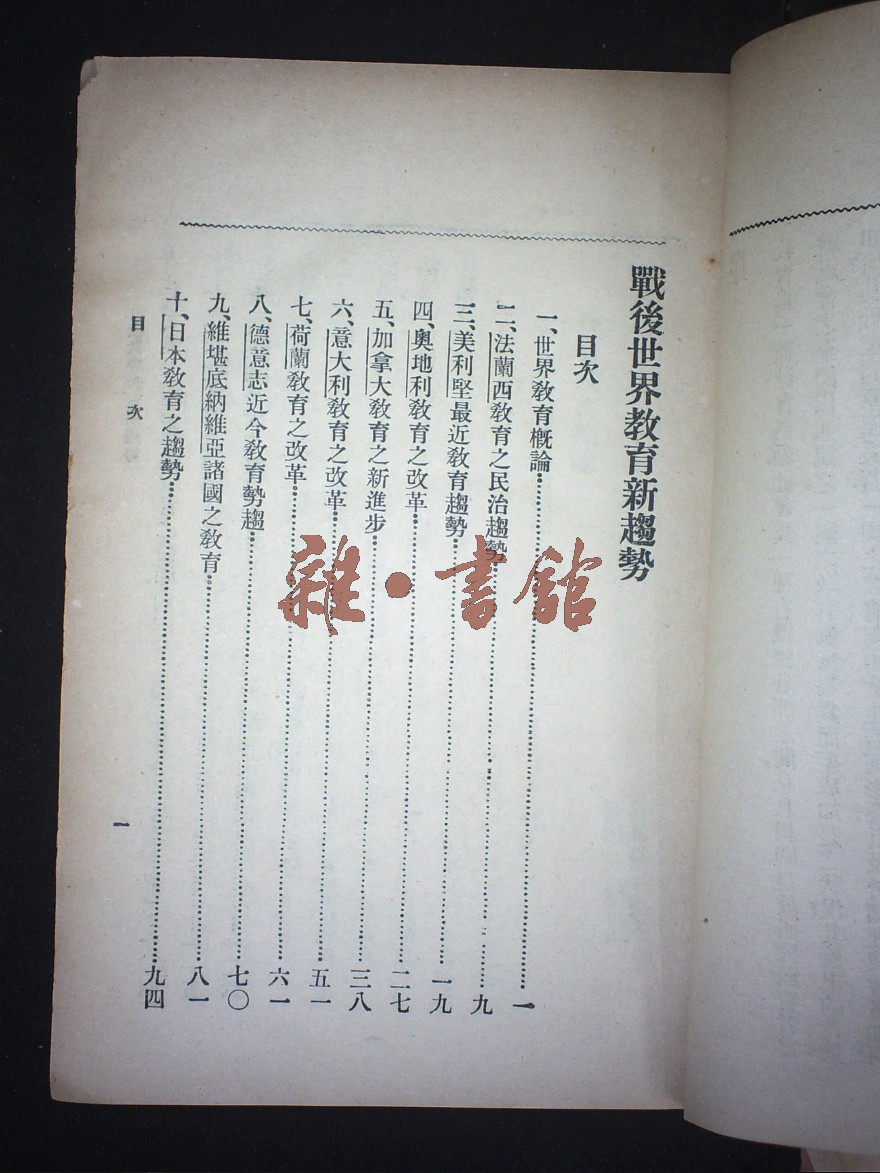 戰後世界教育新趨勢
目次
一、世界教育概論……一
二、法蘭西教育之民治趨勢……九
三、美利堅最近教育趨勢……一九
四、奧地利教育之改革……二七
五、加拿大教育之新進步……三八
六、意大利教育之改革……五一
七、荷蘭教育之改革……六一
八、德意志近今教育勢趨……七〇
九、維堪底納維亞諸國之教育……八一
十、日本教育之趨勢……九四
目次
一
雜·書館